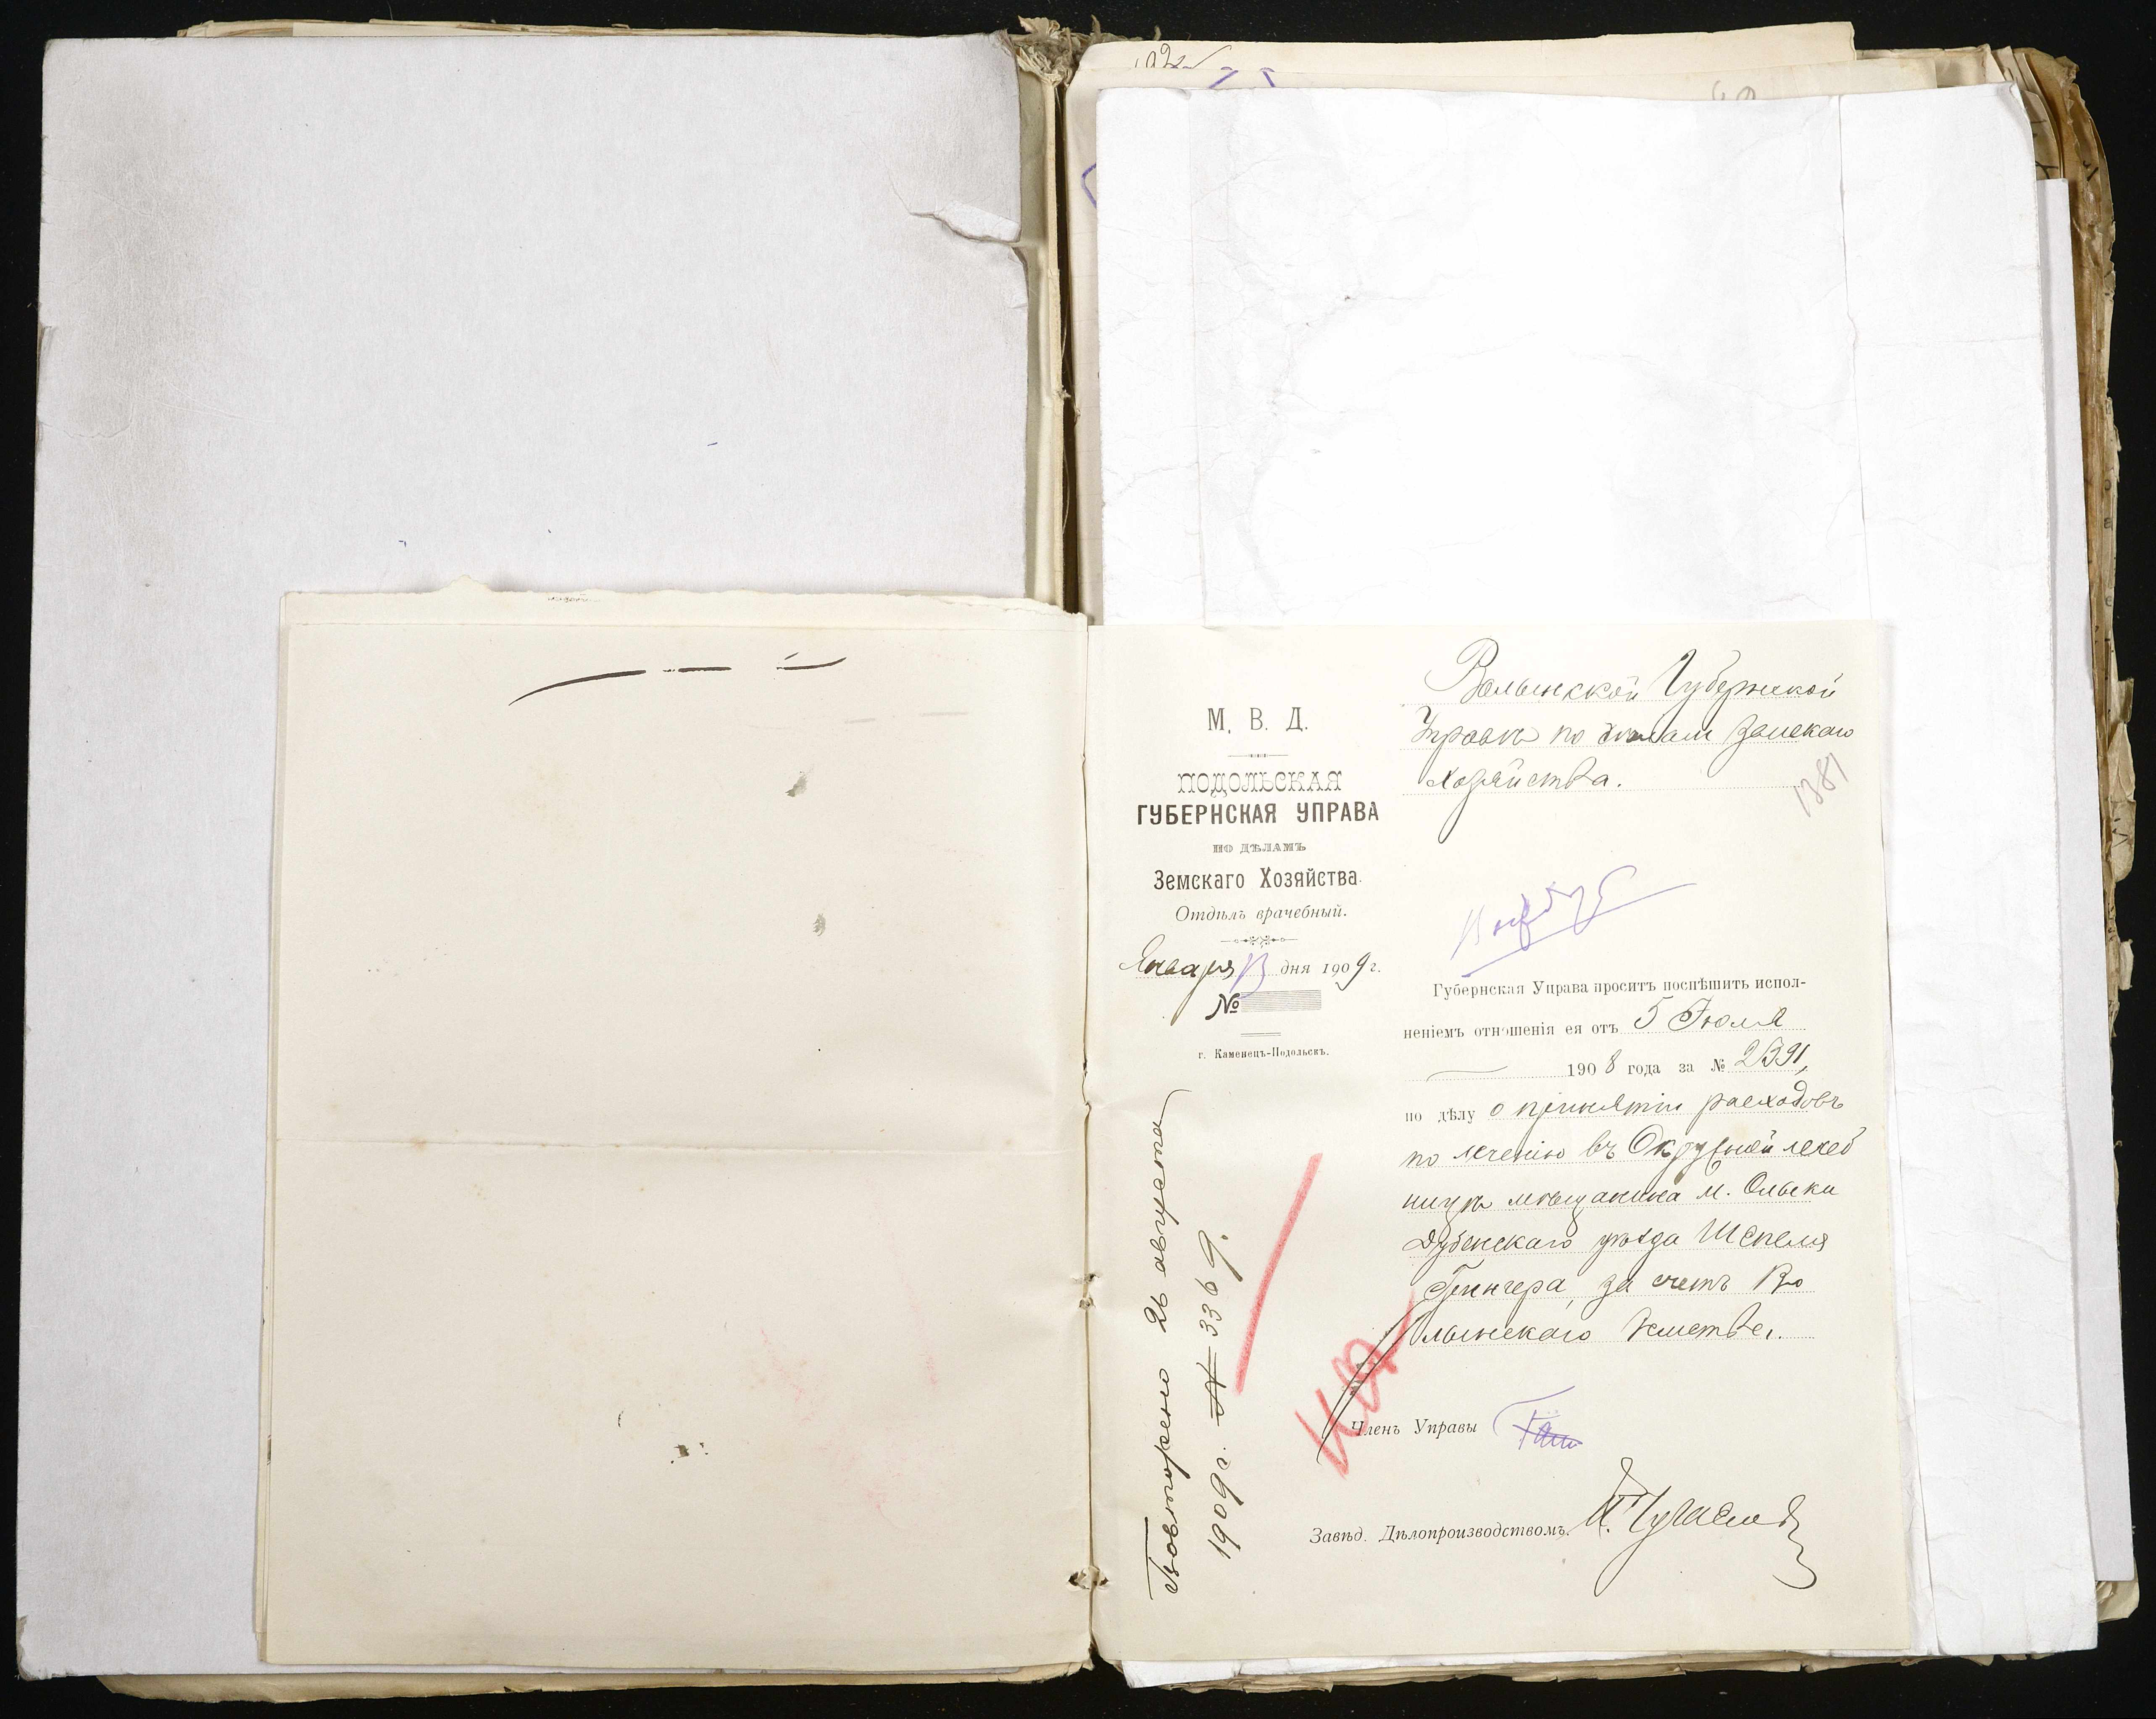 Волынской Губернской
Управѣ по дѣламъ Земскаго
Хозяйства.
1381
М. В. Д.
ПОДОЛЬСКАЯ
ГУБЕРНСКАЯ УПРАВА
ПО ДѢЛАМЪ
Земскаго Хозяйства.
Отдѣлъ врачебный.
Января 13 дня 1909 г.
№
г. Каменецъ-Подольскъ.
Губернская Управа проситъ поспѣшить испол-
неніемъ отношенія ея отъ 5 Іюля
1908 года за № 2391,
по дѣлу о принятіи расходовъ
по леченію въ Окружной лечеб
ницѣ мѣщанина м. Олыки
Дубенскаго уѣзда Шепеля
за счетъ Во
лынскаго земства.
Членъ Управы
Завѣд. Дѣлопроизводствомъ
Повторено 26 августа
1909 г. № 3369.